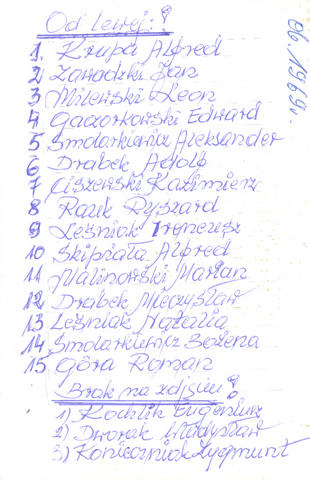 Od lewej:
ok. 1969r.
1. Krupa Alfred
2 Zawadzki Jan
3 Milewski Leon
4 Gaczorkowski Edward
5 Smolarkiewicz Aleksander
6 Drabek Adolf
7 Ciszewski Kazimierz
8 Razik Ryszard
9 Leśniak Ireneusz
10 Skiprała Alfred
11 Malinowski Marian
12 Drabek Mieczysław
13 Leśniak Natalia
14 Smolarkiewicz Bożena
15 Góra Roman
Brak na zdjęciu
1) Kochlik Eugeniusz
2) Dworak Władysław
3) Konieczniak Zygmunt